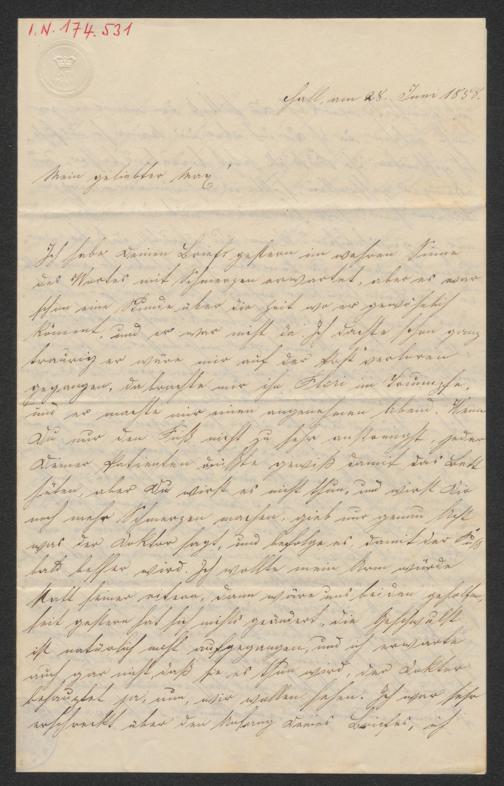 I.N. 174.531
Hall, am 28. Juni 1858.
Mein geliebter Max!
Ich habe Deinen Brief gestern im wahren Sinne
des Wortes mit Schmerzen erwartet, aber es war
schon eine Stunde über die Zeit wo er gewöhnlich
kömmt, und er war nicht da. Ich dachte schon ganz
traurig er wäre mir auf der Post verloren
gegangen, da brachte mir ihn im Triumpfe,
und er machte mir einen angenehmen Abend. Wenn
Du nur den Fuß nicht zu sehr anstrengst, jeder
Deiner Patienten müßte gewiß damit das Bett
hüten, aber Du wirst es nicht thun, und wirst Dir
noch mehr Schmerzen machen, gieb nur genau Acht
was der Doktor sagt, und befolge es, damit der Fuß
bald besser wird. Ich wollte mein Arm würde
statt seiner eitern, dann wäre uns beiden geholfen,
seit gestern hat sich nichts geändert, die Geschwulst
ist natürlich nicht aufgegangen, und ich erwarte
auch gar nicht daß sie es thun wird, der Doktor
behauptet ja, nun, wir wollen sehen. Ich war sehr
erschreckt über den Anfang Deines Briefes, ich